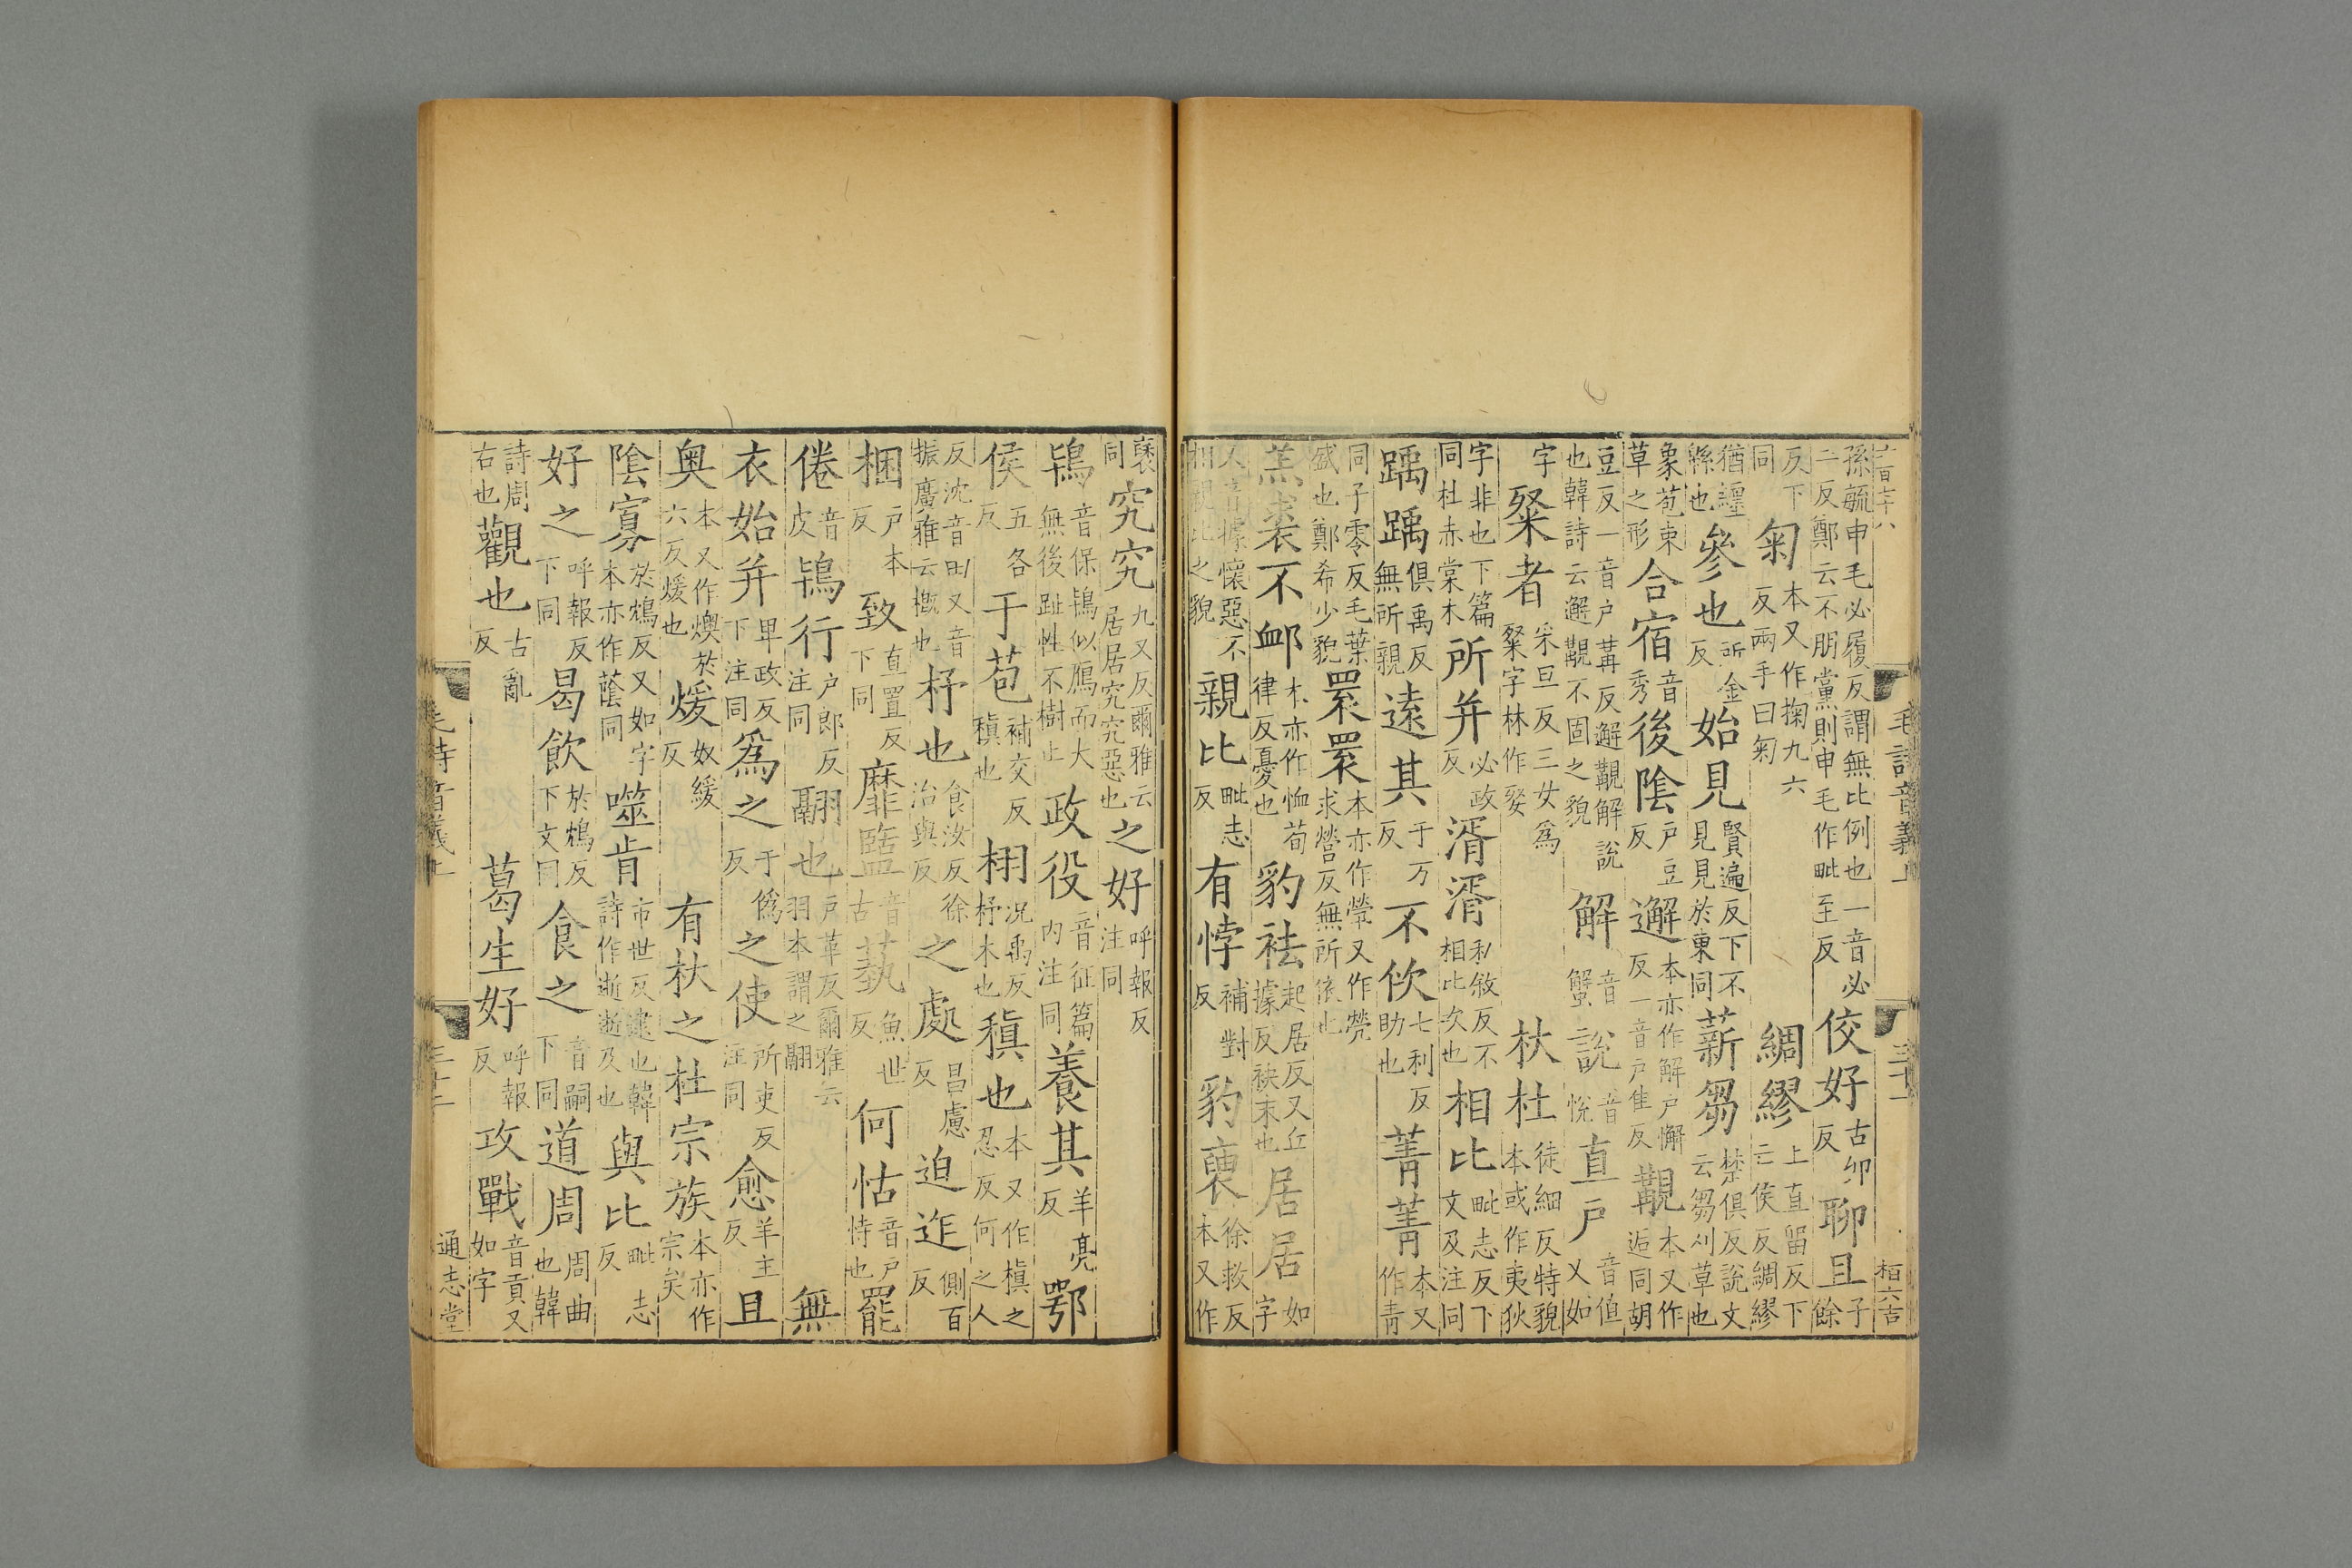 毛詩音義上 三十一 栢六吉
孫毓申毛必履反謂無比例也一音必二反鄭云不朋黨則申毛作毗至反佼好古卯反聊且子餘
反下同匊本又作掬九六反兩手曰匊綢繆上直留反下亡侯反綢繆
猶纏緜也參也所金反始見賢遍反下不見見於東同薪芻楚俱反說文云芻刈草也
象苞束草之形合宿音秀後陰戶豆反邂本亦作解戶懈反一音戶隹反覯本又作逅同胡
豆反一音戶冓反邂覯解說也韓詩云邂覯不固之貌解音蟹說音悅直戶音值又如
字粲者采旦反三女為粲字林作㛑杕杜徒細反特貌本或作夷狄
字非也下篇同杜赤棠木所并必政反湑湑私敘反不相比次也相比毗志反下文及注同
踽踽俱禹反無所親遠其于万反不佽七利反助也菁菁本又作青
同子零反毛葉盛也鄭希少貌睘睘本亦作煢又作㷀求營反無所依也
羔裘不卹本亦作恤荀律反憂也豹袪起居反又丘據反袂末也居居如字
又音據懷惡不相親比之貌親比毗志反有悖補對反豹褎徐救反本又作
褏同究究九又反爾雅云居居究究惡也之好呼報反注同
鴇音保鴇似鴈而大無後趾性不樹止政役音征篇内注同養其羊亮反鄂
侯五各反于苞補交反稹也栩況禹反杼木也稹也本又作槙之忍反何之人
反沈音田又音振廣雅云概也杼也食汝反徐治與反之處昌慮反迫迮側百反
梱戶本反致直置反下同靡盬音古蓺魚世反何怙音戶恃也罷
倦音皮鴇行戶郎反注同翮也戶革反爾雅云羽本謂之翮無
衣始并卑政反下注同為之于偽反之使所吏反注同愈羊主反且
奧本又作燠於六反煖也煖奴緩反有杕之杜宗族本亦作宗矣
陰寡於鴆反又如字本亦作蔭同噬肯市世反逮也韓詩作逝逝及也與比毗志反
好之呼報反下同曷飲於鴆反下文同食之音嗣下同道周周曲也韓
詩周右也觀也古亂反葛生好呼報反攻戰音貢又如字
毛詩音義上 三十二 通志堂